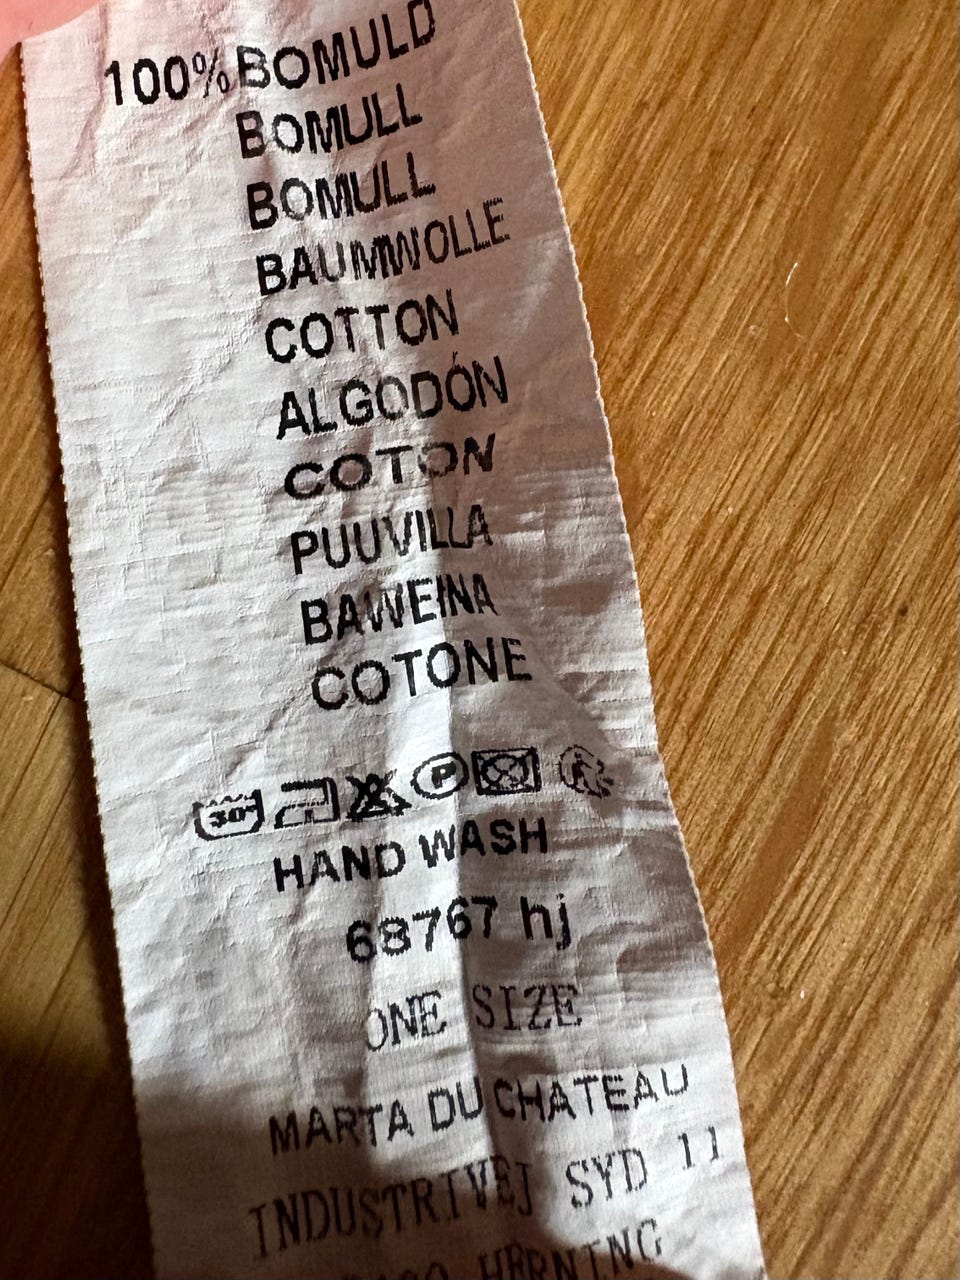 100% BOMULD
BOMULL
BOMULL
BAUMWOLLE
COTTON
ALGODÓN
COTON
PUUVILLA
BAWEINA
COTONE
30° P
HAND WASH
68767 hj
ONE SIZE
MARTA DU CHATEAU
INDUSTRIVEJ SYD 11
HERNING